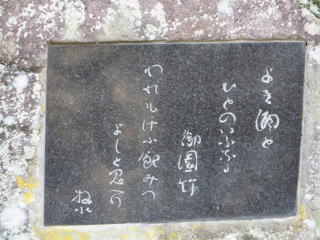 よき酒と
ひとのいふなる
御園竹
われもけふ飲みつ
よしと思へり
牧水